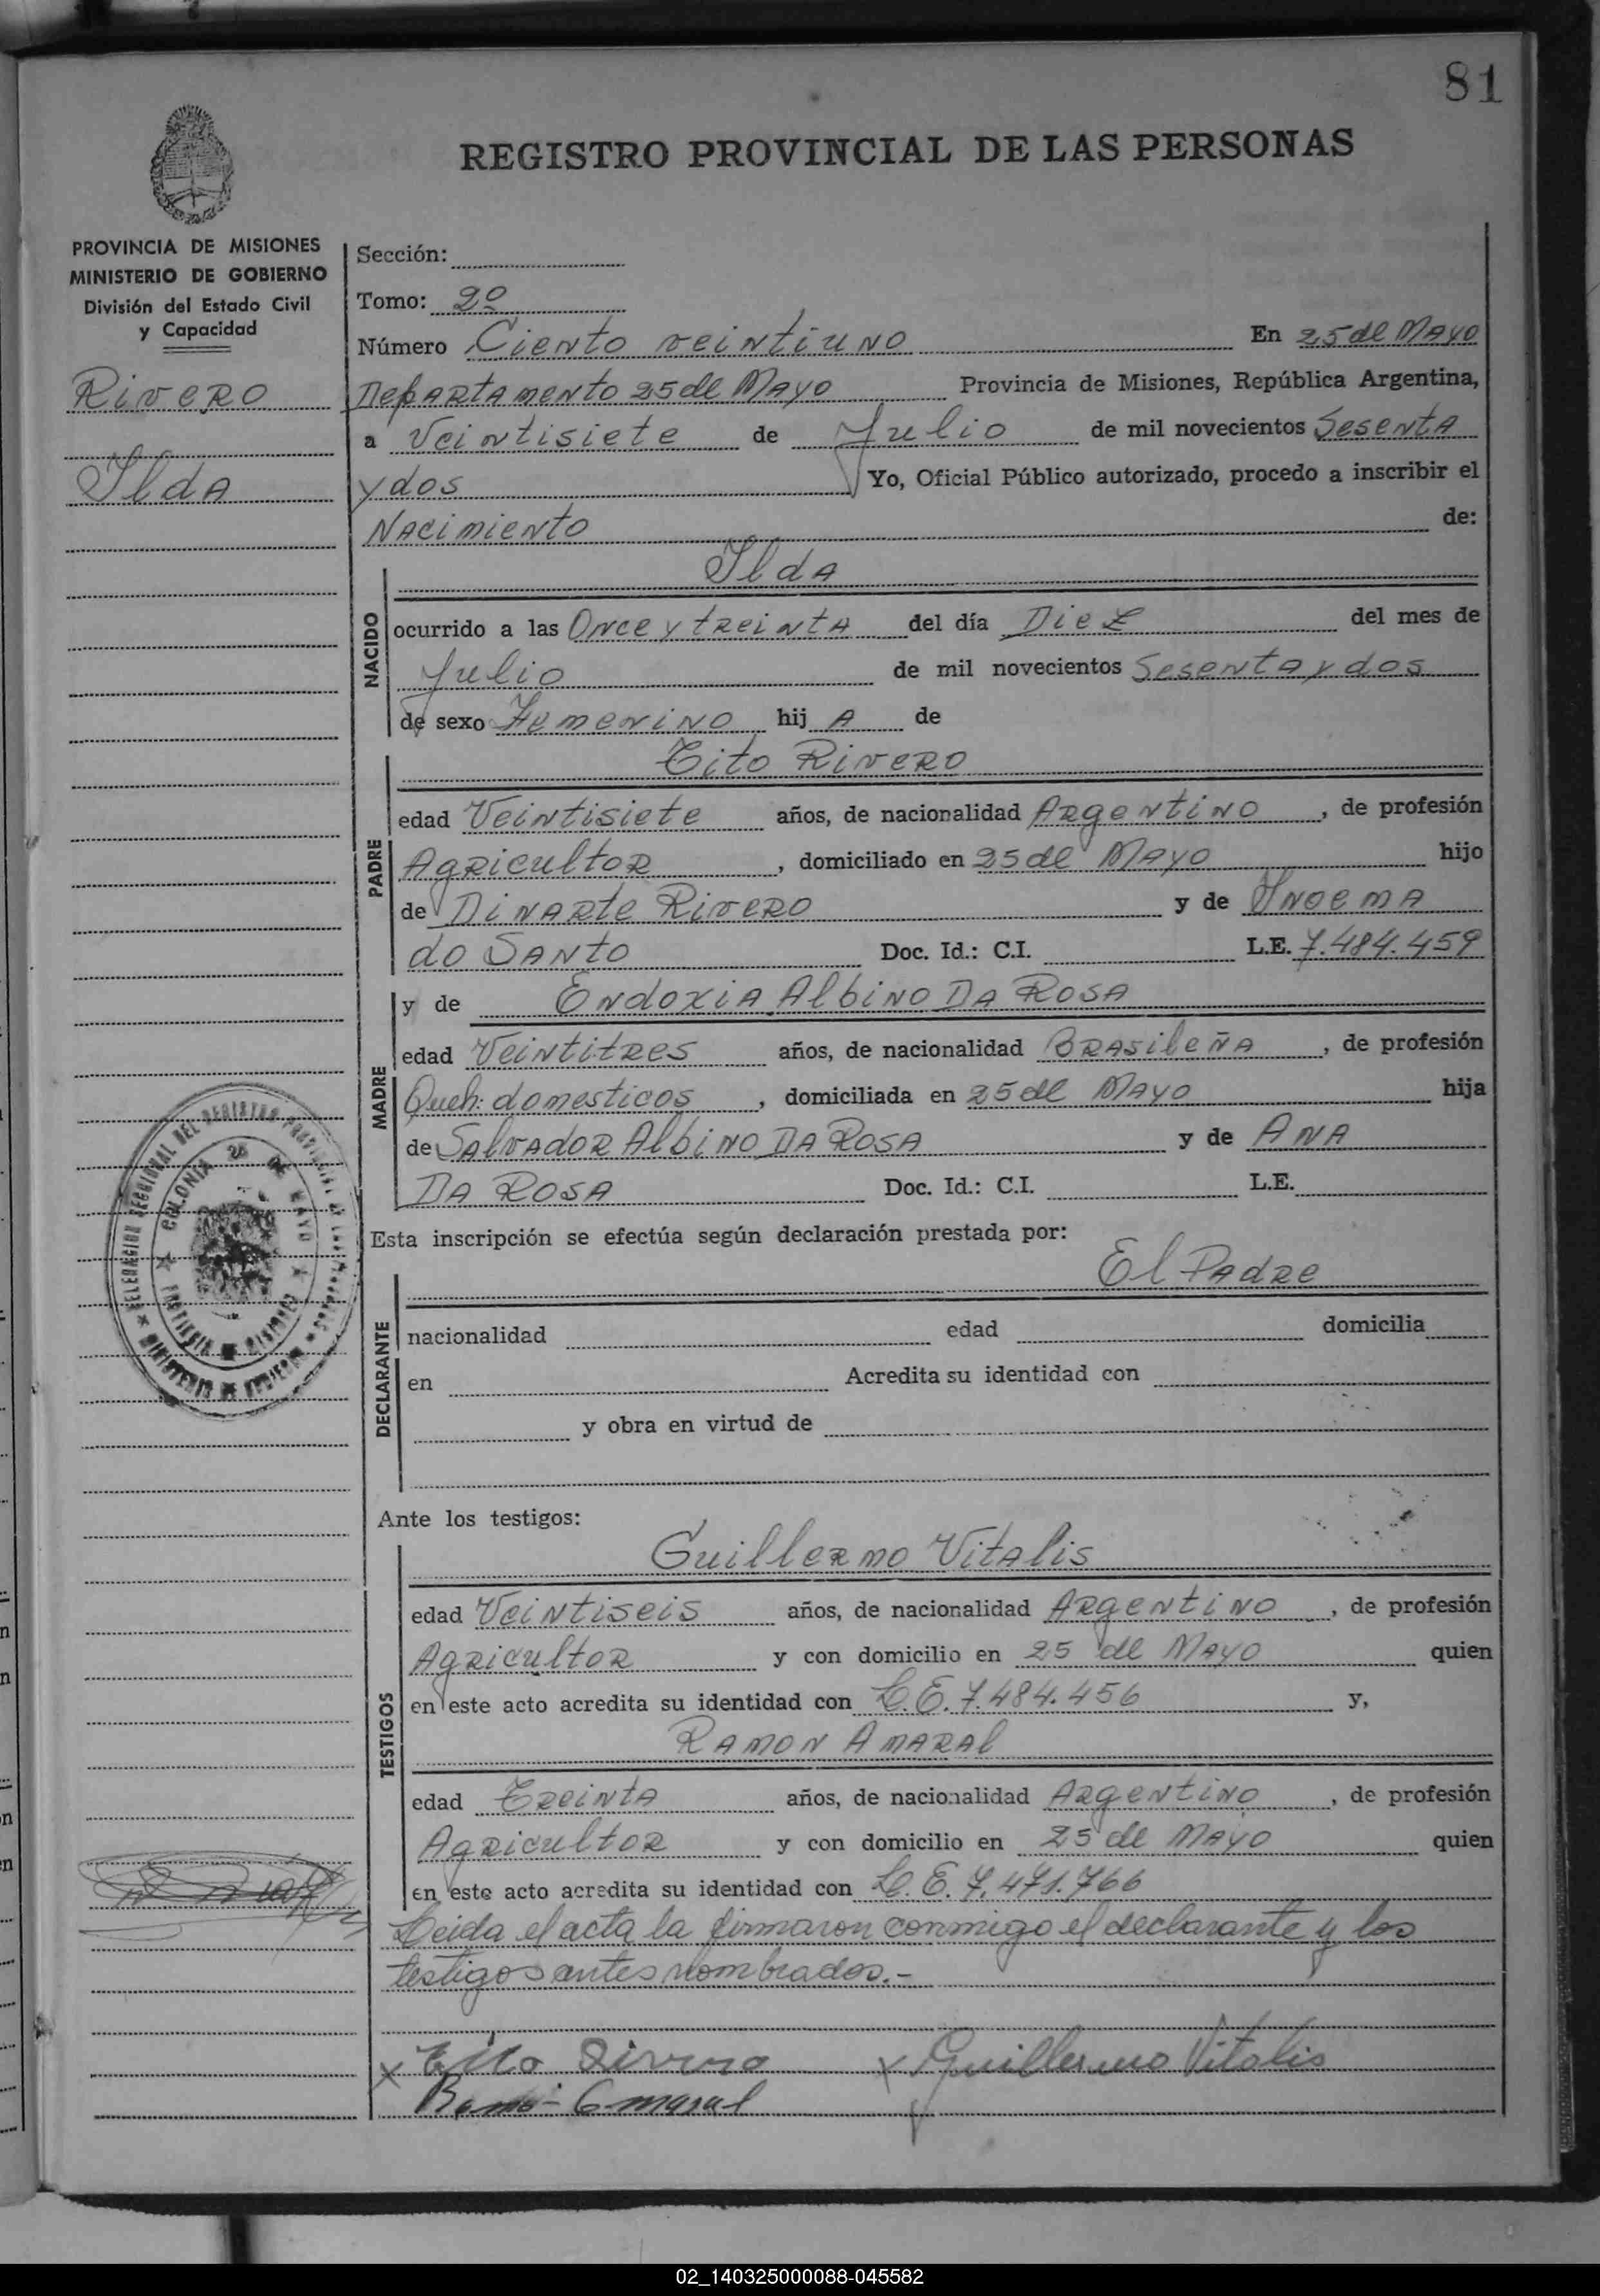 81
REGISTRO PROVINCIAL DE LAS PERSONAS
PROVINCIA DE MISIONES
MINISTERIO DE GOBIERNO
División del Estado Civil
y Capacidad
Rivero
Ilda
Sección:
Tomo: 2º
Número Ciento veintiuno En 25 de Mayo
Departamento 25 de Mayo Provincia de Misiones, República Argentina,
a Veintisiete de Julio de mil novecientos Sesenta
y dos Yo, Oficial Público autorizado, procedo a inscribir el
Nacimiento de:
Ilda
NACIDO
ocurrido a las Once y treinta del día Diez del mes de
Julio de mil novecientos Sesenta y dos
de sexo Femenino hij A de
Tito Rivero
PADRE
edad Veintisiete años, de nacionalidad Argentino, de profesión
Agricultor, domiciliado en 25 de Mayo hijo
de Dinarte Rivero y de Inoema
do Santo Doc. Id.: C.I. L.E. 7.484.459
MADRE
y de Endoxia Albino Da Rosa
edad Veintitres años, de nacionalidad Brasileña, de profesión
Queh: domesticos, domiciliada en 25 de Mayo hija
de Salvador Albino Da Rosa y de Ana
Da Rosa Doc. Id.: C.I. L.E.
Esta inscripción se efectúa según declaración prestada por:
El Padre
DECLARANTE
nacionalidad edad domicilia
en Acredita su identidad con
y obra en virtud de
COLONIA 25 DE MAYO
Ante los testigos:
Guillermo Vitalis
TESTIGOS
edad Veintiseis años, de nacionalidad Argentino, de profesión
Agricultor y con domicilio en 25 de Mayo quien
en este acto acredita su identidad con L.E. 7.484.456 y,
Ramon Amaral
edad Treinta años, de nacionalidad Argentino, de profesión
Agricultor y con domicilio en 25 de Mayo quien
en este acto acredita su identidad con L.E. 7.471.766
Leida el acta la firmaron conmigo el declarante y los
testigos antes nombrados.-
x Tito Rivero x Guillermo Vitalis
Ramon Amaral
02_140325000088-045582